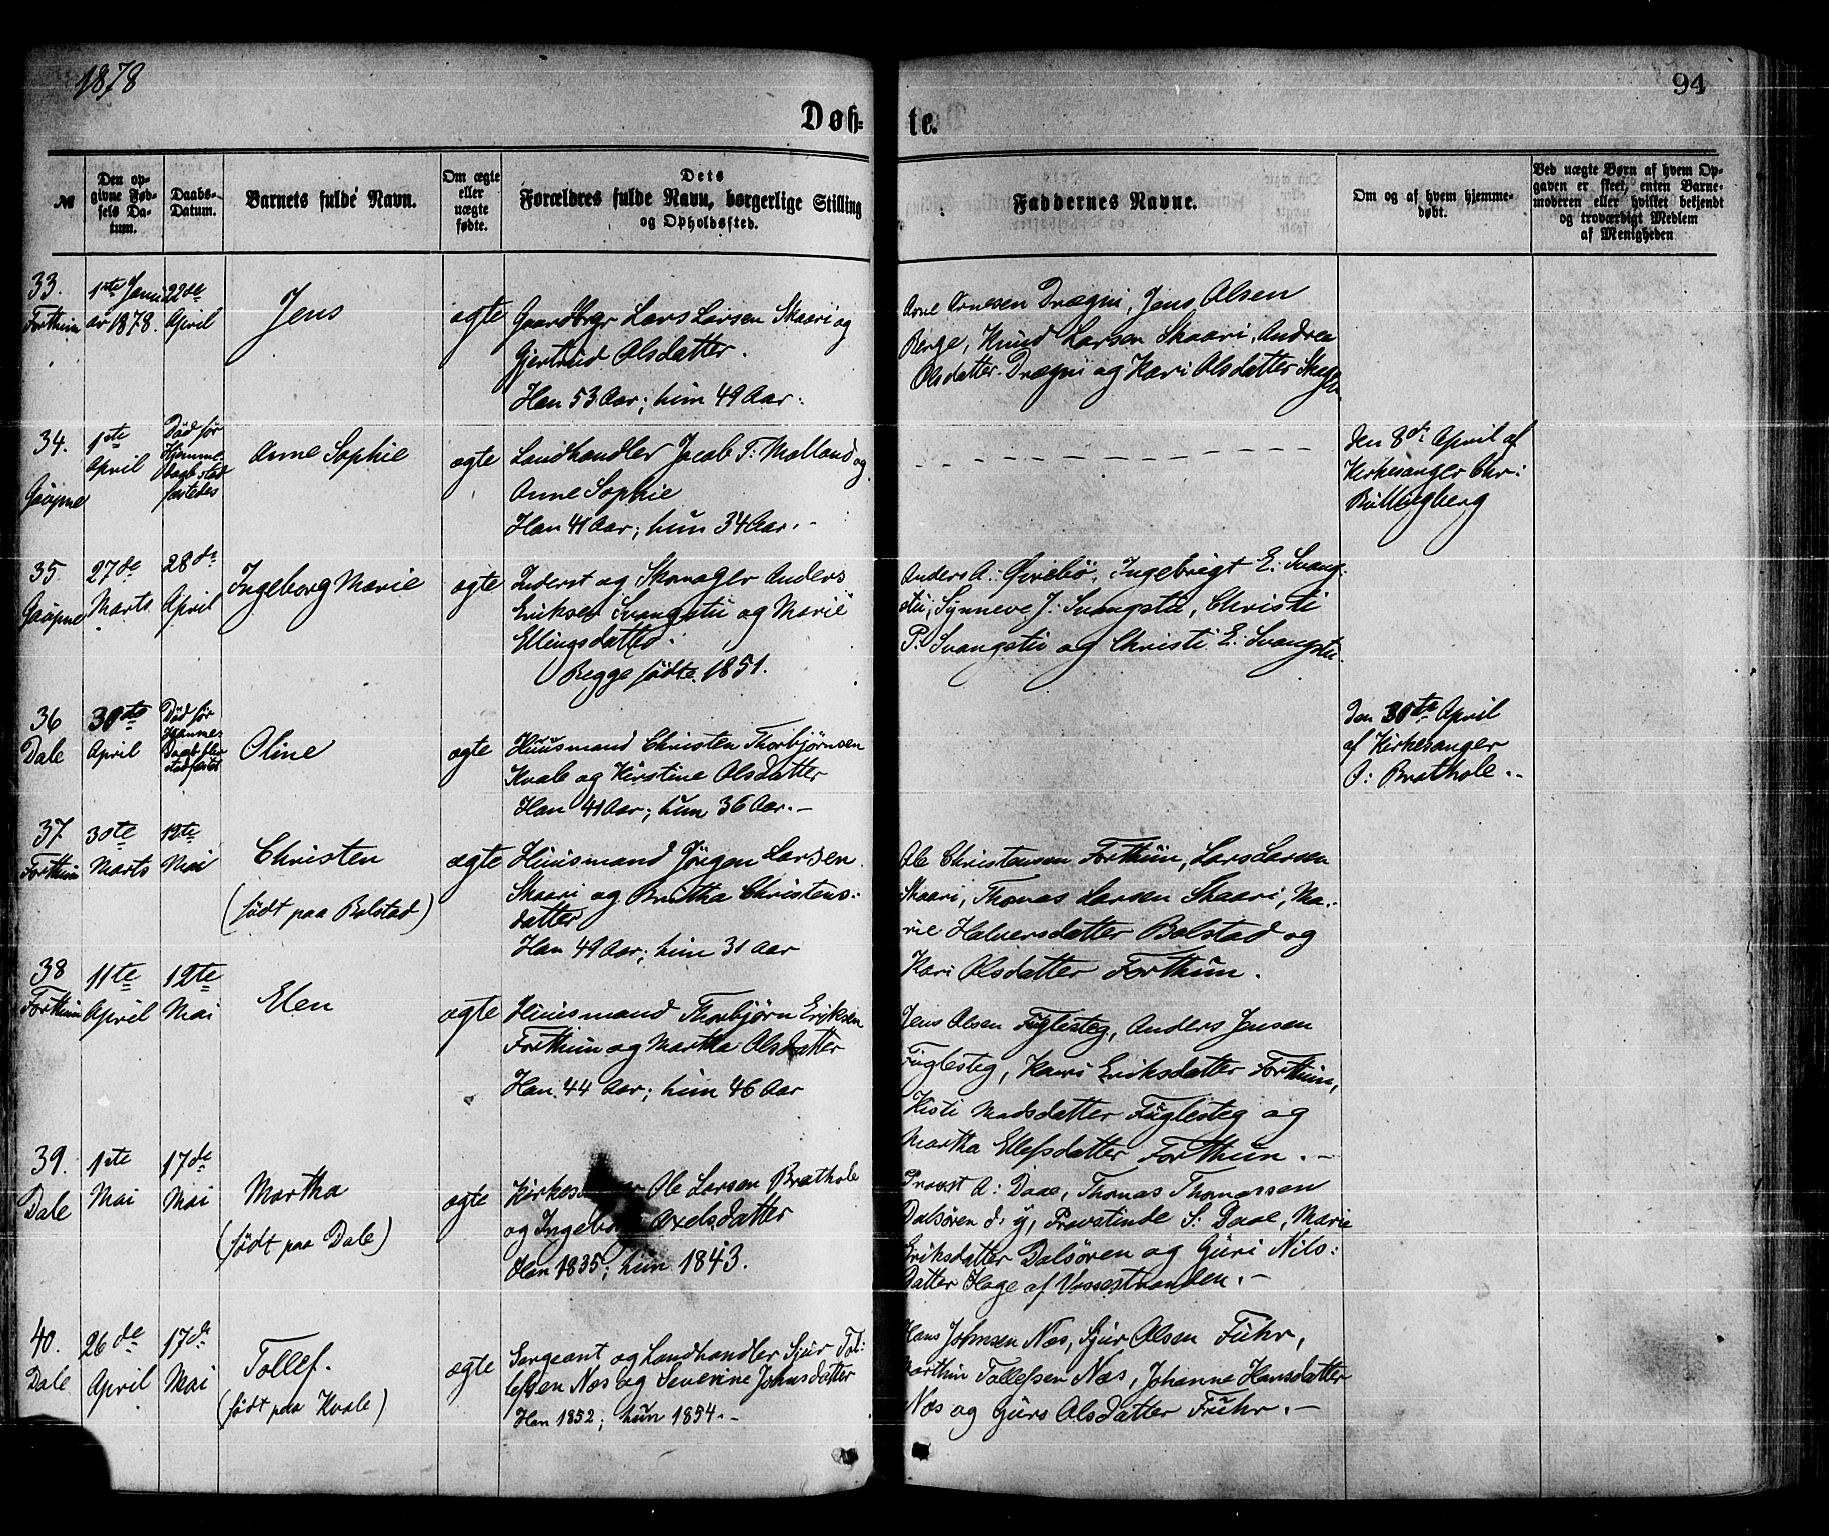 1878
94
Døb-
te.
№
Den op-
givne Fød-
sels Da-
tum.
Daabs-
Datum.
Barnets fulde Navn.
Om ægte
eller
uægte
fødte.
Dets
Forældres fulde Navn, borgerlige Stilling
og Opholdssted.
Faddernes Navne.
Om og af hvem hjemme-
døbt.
Ved uægte Børn af hvem Op-
gaven er skeet, enten Barne-
moderen eller hvilket bekjendt
og troværdigt Medlem
af Menigheden
33.
Forthun
1ste Janu
ar 1878.
22de
April
Jens
ægte
Gaardbrgr Lars Larsen Skaari og
Gjertrud Olsdatter.
Han 53 Aar; hun 49 Aar.
Arne Arnesen Drægni, Jens Olsen
Berge, Knud Larsen Skaari, Andrea
Olsdatter Drægni og Kari Olsdatter
34.
Gaupne
1ste
April
Død før
Hjemme
daab stad
fæstedes
Anne Sophie
ægte
Landhandler Jacob T: Molland og
Anne Sophie
Han 41 Aar; hun 34 Aar.
Den 8de April af
Kirkesanger Chr:
Bullingberg
35
Gaupne
27de
Marts
28de
April
Ingeborg Marie
ægte
Inderst og Skomager Anders
Eriksen Svangstu og Marie
Ellingsdatter.
Begge fødte 1851.
Anders A: Øvrebø, Ingebrigt E: Svang-
stu, Synneve J: Svangstu, Christi
P: Svangstu og Christi E: Svangstu.
36
Dale
30te
April
Død før
Hjemme
Daab blev
stadfæstet
Oline
ægte
Huusmand Christen Thorbjørnsen
Kvale og Kirstine Olsdatter
Han 41 Aar; hun 36 Aar.
Den 30te April
af Kirkesanger
O: Brathole.
37
Forthun
30te
Marts
12te
Mai
Christen
(født paa Bolstad)
ægte
Huusmand Jørgen Larsen
Skaari og Britha Christens-
datter
Han 49 Aar; hun 31 Aar
Ole Christensen Forthun, Lars Larsen
Skaari, Thomas Larsen Skaari, Ma-
rie Halversdatter Bolstad og
Kari Olsdatter Forthun.
38
Forthun
11te
April
12te
Mai
Elen
ægte
Huusmand Thorbjørn Eriksen
Forthun og Martha Olsdatter
Han 44 Aar; hun 46 Aar
Jens Olsen Fuglesteg, Anders Jensen
Fuglesteg, Kari Eriksdatter Forthun,
Kisti Madsdatter Fuglesteg og
Martha Ellefsdatter Forthun.
39.
Dale
1ste
Mai
17de
Mai
Martha
(født paa Dale)
ægte
Kirkesanger Ole Larsen Brathole
og Ingeborg Axelsdatter
Han 1835; hun 1843.
Provst A: Daae, Thomas Thomassen
Dalsøren d: y, Provstinde S: Daae, Marie
Eriksdatter Dalsøren og Guri Nils-
datter Hage af Vossestranden.
40.
Dale
26de
April
17de
Mai
Tollef.
(født paa Kvale)
ægte
Sergeant og Landhandler Sjur Tol-
lefsen Næs og Severine Johnsdatter
Han 1852; hun 1854.
Hans Johnsen Næs, Sjur Olsen Fuhr,
Marthin Tollefsen Næs, Johanne Hansdatter
Næs og Guro Olsdatter Fuhr.